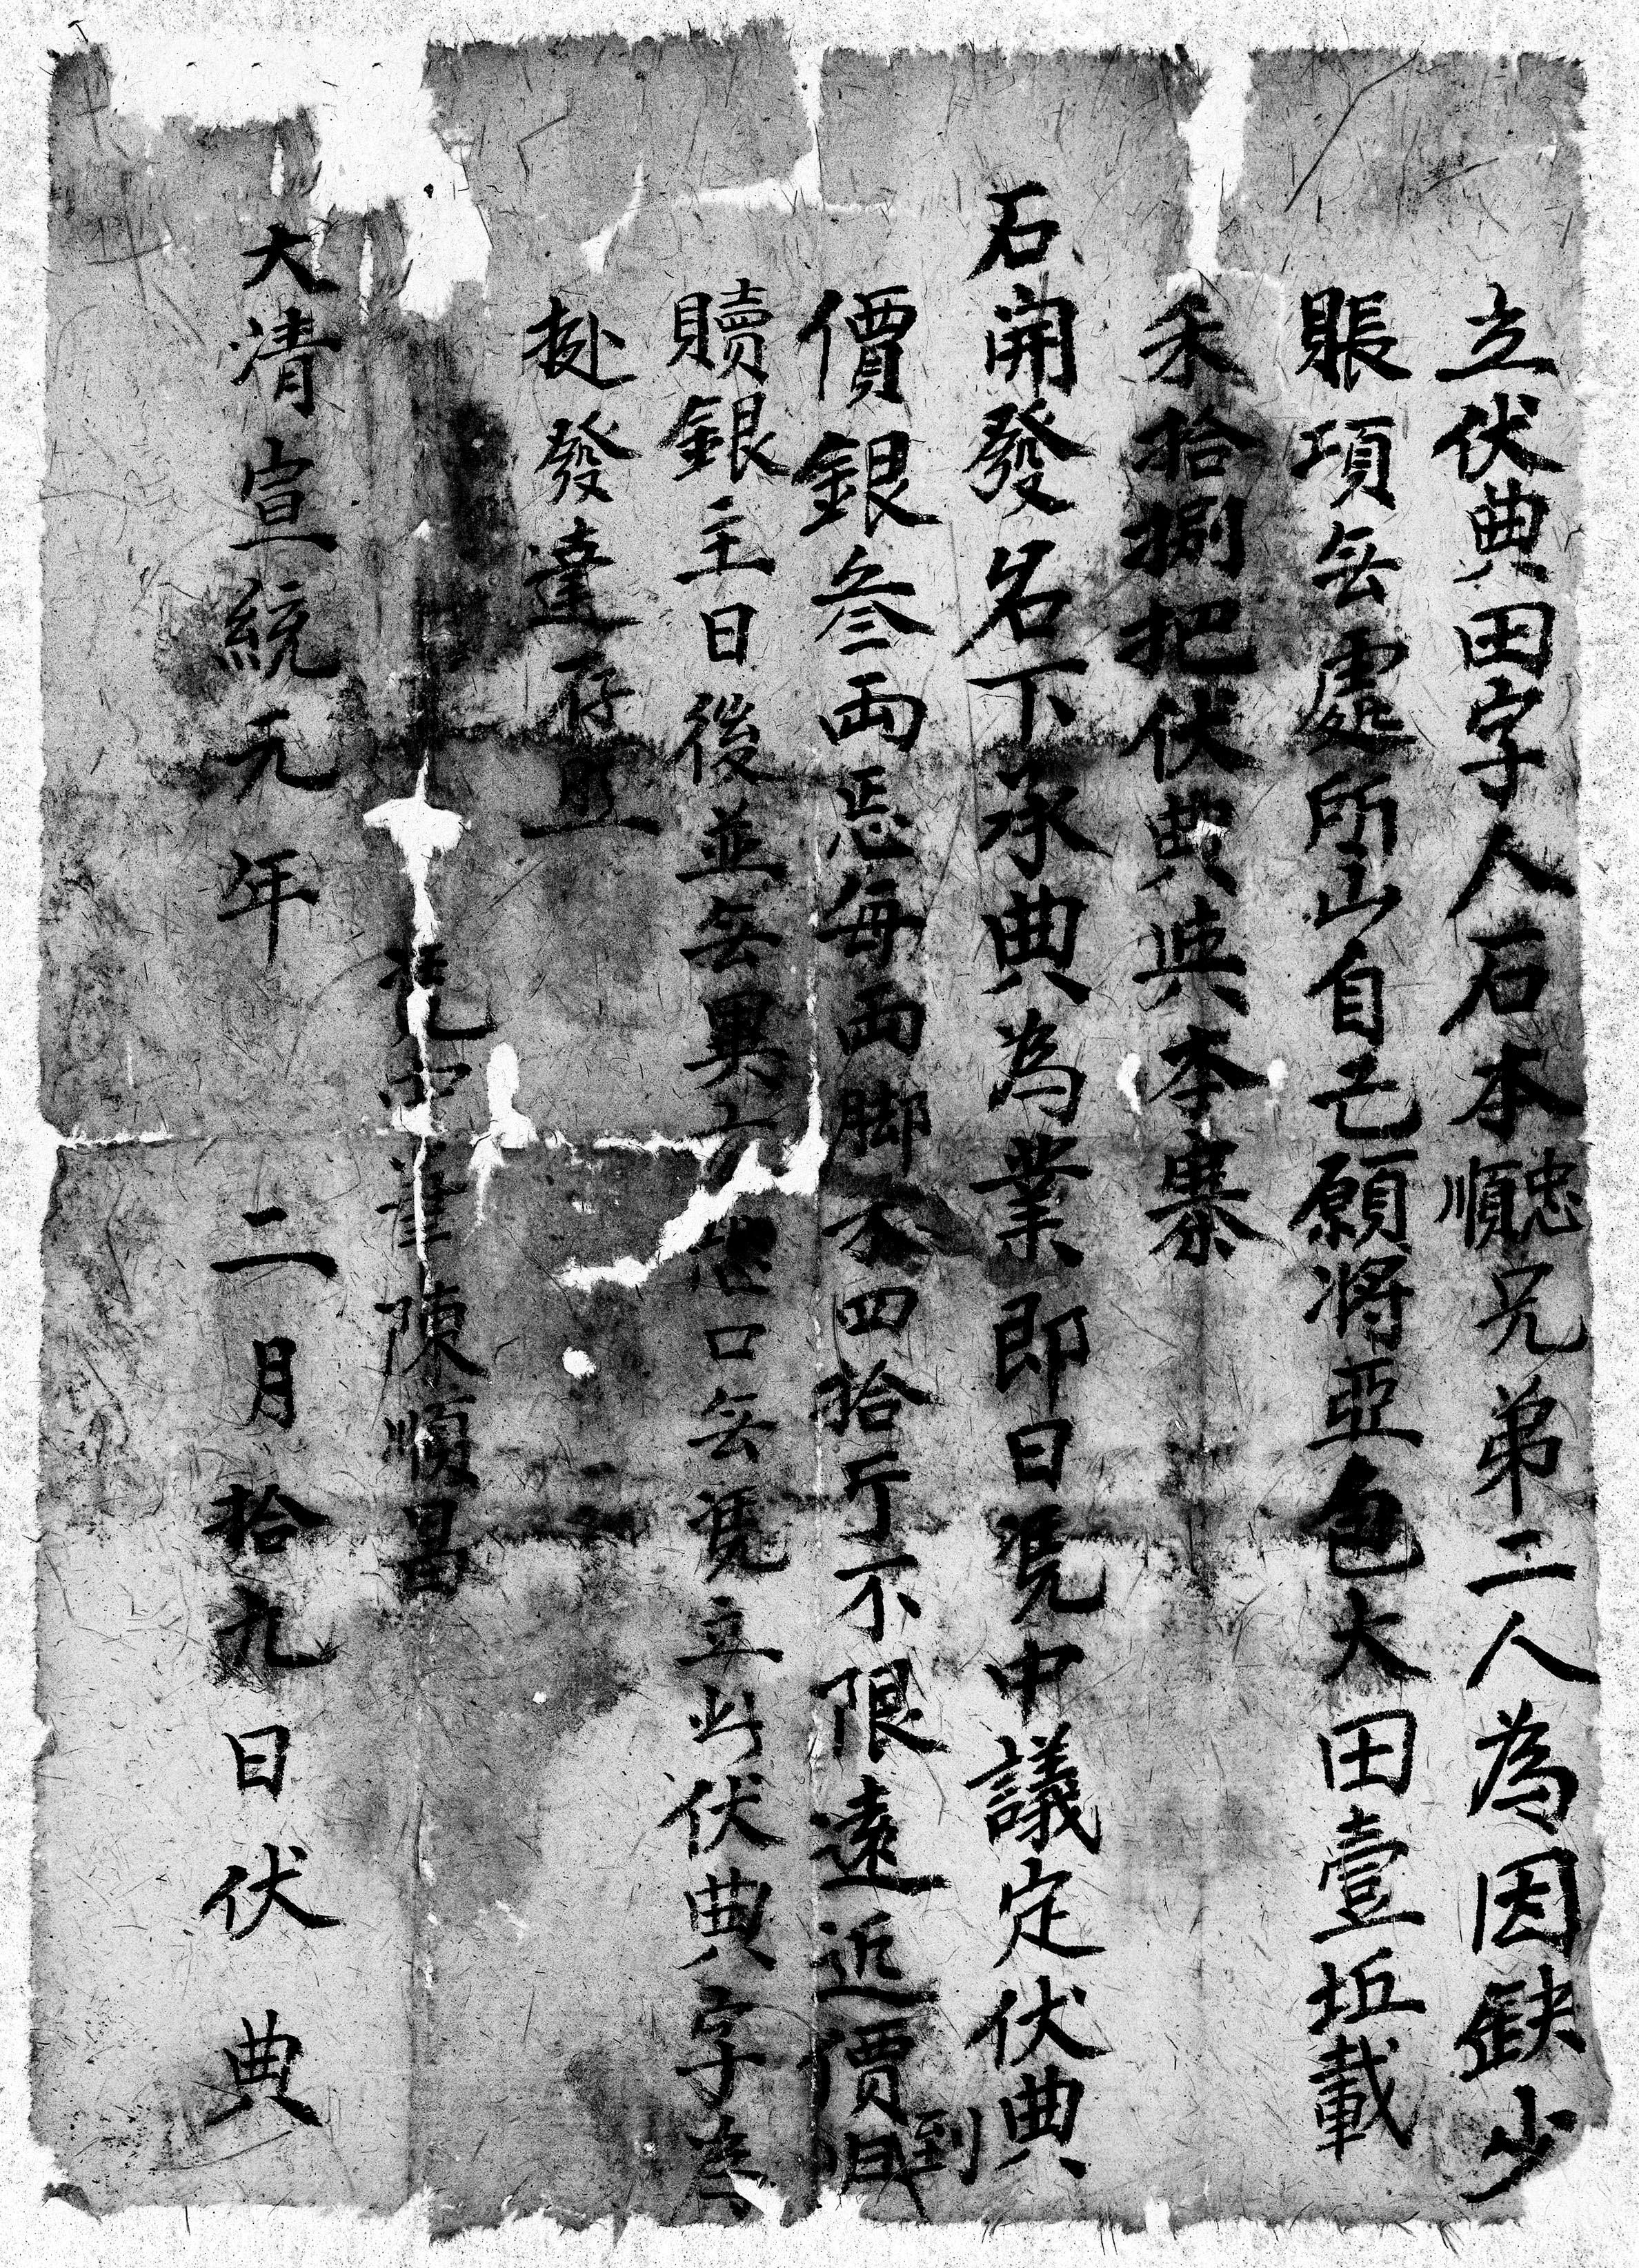 立伏典田字人石本忠順兄弟二人為因缺少
賬項無處所山自己願將亞色大田壹坵載
禾拾捌把伏典與本寨
石開發名下承典為業即日憑中議定伏典
價銀叁両恁每両脚禾四拾斤不限遠近價到
贖銀主日後並無異言恐口無憑立此伏典字為
赴發達存照
憑中筆陳順昌
大清宣統元年二月拾九日伏典